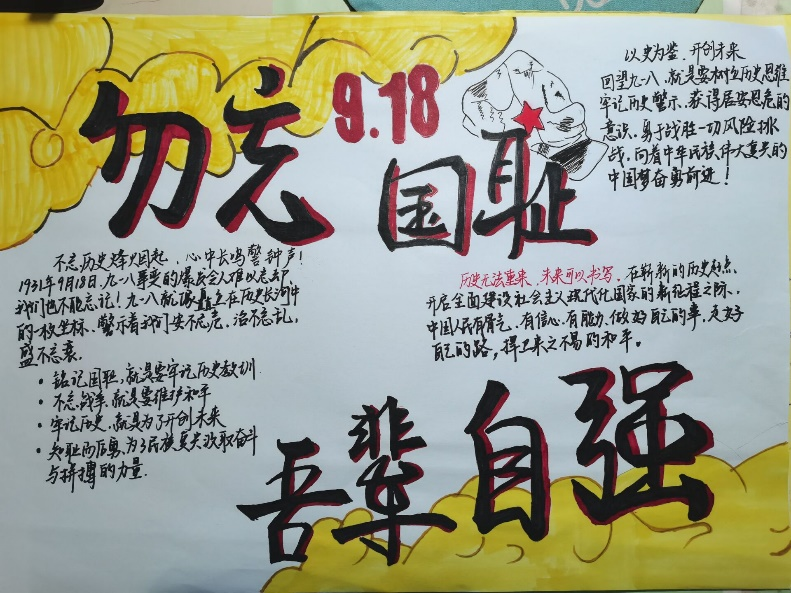 勿忘
9.18
国耻
以史为鉴、开创未来
回望九一八,就是要树立历史思维
牢记历史警示、获得居安思危的
意识,勇于战胜一切风险挑
战,向着中华民族伟大复兴的
中国梦奋勇前进!
不忘历史烽火起、心中长鸣警钟声!
1931年9月18日,九一八事变的爆发令人难以忘却,
我们也不能忘记!九一八就像矗立在历史长河中
的一枚坐标、警示着我们安不忘危、治不忘乱,
盛不忘衰。
· 铭记国耻,就是要牢记历史教训
· 不忘战争,就是要维护和平
· 牢记历史,就是为了开创未来
· 知耻而后勇,为了民族复兴汲取奋斗
与拼搏的力量.
历史无法重来、未来可以书写、在崭新的历史起点,
开启全面建设社会主义现代化国家的新征程之际、
中国人民有骨气、有信心、有能力、做好自己的事,走好
自己的路,捍卫来之不易的和平。
吾辈自强